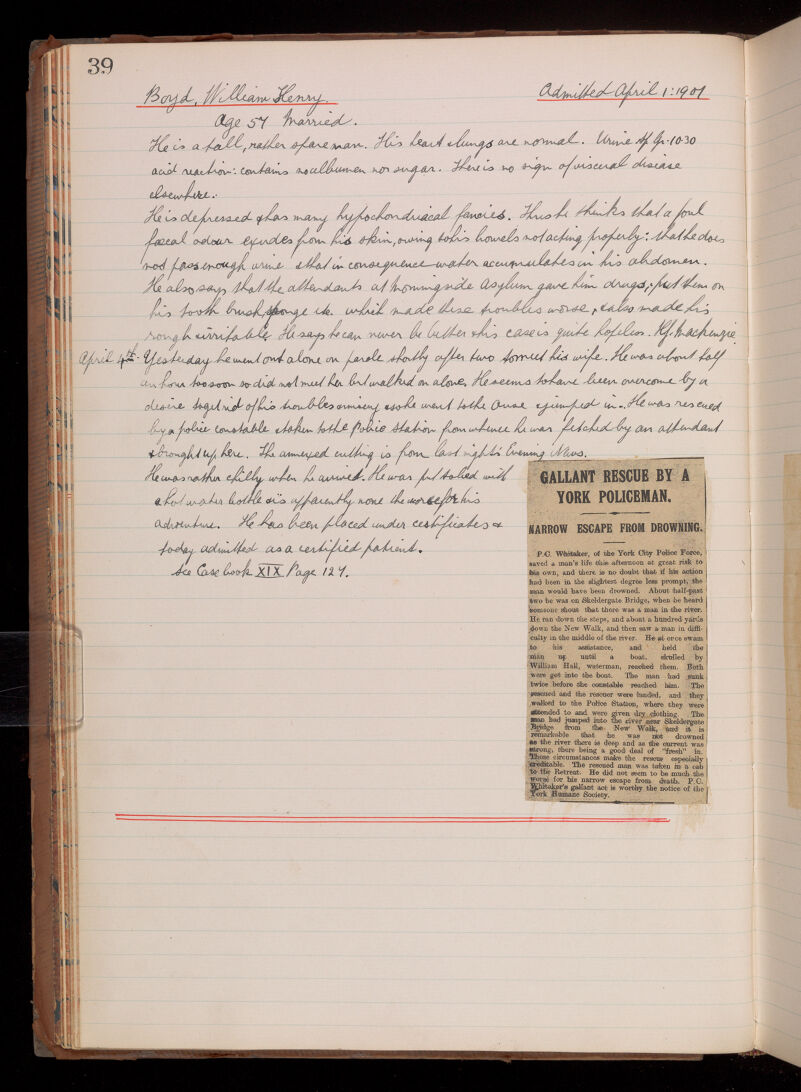 39
Boyd, William Henry. Admitted April 1: 1901
Age 57 Married.
He is a tall, rather spare man. His heart & lungs are normal. Urine Sp Gr. 10.30
acid reaction: contains no albumen nor sugar. There is no sign of visceral disease
elsewhere.
He is depressed & has many hypochondriacal fancies. Thus he thinks that a foul
faecal odour exudes from his skin, owing to his bowels not acting properly: that he does
not pass enough urine & that in consequence water accumulates in his abdomen.
He also says that the attendants at Morningside Asylum gave him drugs, & put them on
his tooth brush, sponge etc. which made these troubles worse, & also made his
rough & irritable. He says he can never be better & his case is quite hopeless. Mackenzie
April 4th. Yesterday he went out alone on parole shortly after two to meet his wife. He was about half
an hour too soon so did not meet her but walked on alone. He seems to have been overcome by a
desire to get rid of his troubles & misery & so he went to the Ouse & jumped in. He was rescued
by a police constable & taken to the Police Station from whence he was fetched by an attendant
& brought up here. The annexed cutting is from last night's Evening News.
He was rather chilly when he arrived. He was put to bed with
a hot water bottle & is apparently none the worse for his
adventure. He has been placed under certificates &
today admitted as a certified patient.
See Case book XIX Page 127.
GALLANT RESCUE BY A
YORK POLICEMAN.
NARROW ESCAPE FROM DROWNING.
P.C. Whitaker, of the York City Police Force,
saved a man's life this afternoon at great risk to
his own, and there is no doubt that if his action
had been in the slightest degree less prompt, the
man would have been drowned. About half-past
two he was on Skeldergate Bridge, when he heard
someone shout that there was a man in the river.
He ran down the steps, and about a hundred yards
down the New Walk, and then saw a man in diffi-
culty in the middle of the river. He at once swam
to his assistance, and held the
man up until a boat, skulled by
William Hall, waterman, reached them. Both
were got into the boat. The man had sunk
twice before the constable reached him. The
rescued and the rescuer were landed, and they
walked to the Police Station, where they were
attended to and were given dry clothing. The
man had jumped into the river near Skeldergate
Bridge from the New Walk, and it is
remarkable that he was not drowned
as the river there is deep and as the current was
strong, there being a good deal of "fresh" in.
Those circumstances make the rescue especially
creditable. The rescued man was taken in a cab
to the Retreat. He did not seem to be much the
worse for his narrow escape from death. P.C.
Whitaker's gallant act is worthy the notice of the
York Humane Society.